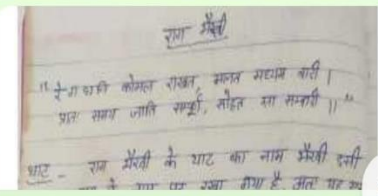 राग भैरवी
"रे ग ध नी कोमल राखत, मानत मध्यम वादी ।
प्रात समय जाति सम्पूर्ण, सोहत सा सम्वादी ॥"
थाट - राग भैरवी के थाट का नाम भैरवी इसी
के नाम पर रखा गया है अतः यह